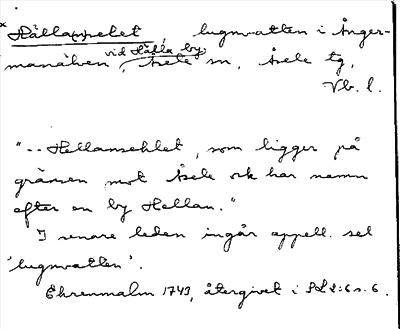 Hälla(?)selet, lugnvatten i Ånger-
vid Hälla by,
manälven, Åsele sn, Åsele tg,
Vb. l.
"-- Hellansehlet, som ligger på
gränsen mot Åsele och har namn
efter en by Hellan."
I senare leden ingår appell. sel
'lugnvatten'.
Ehrenmalm 1743, återgivet i SLL:6 s. 6.